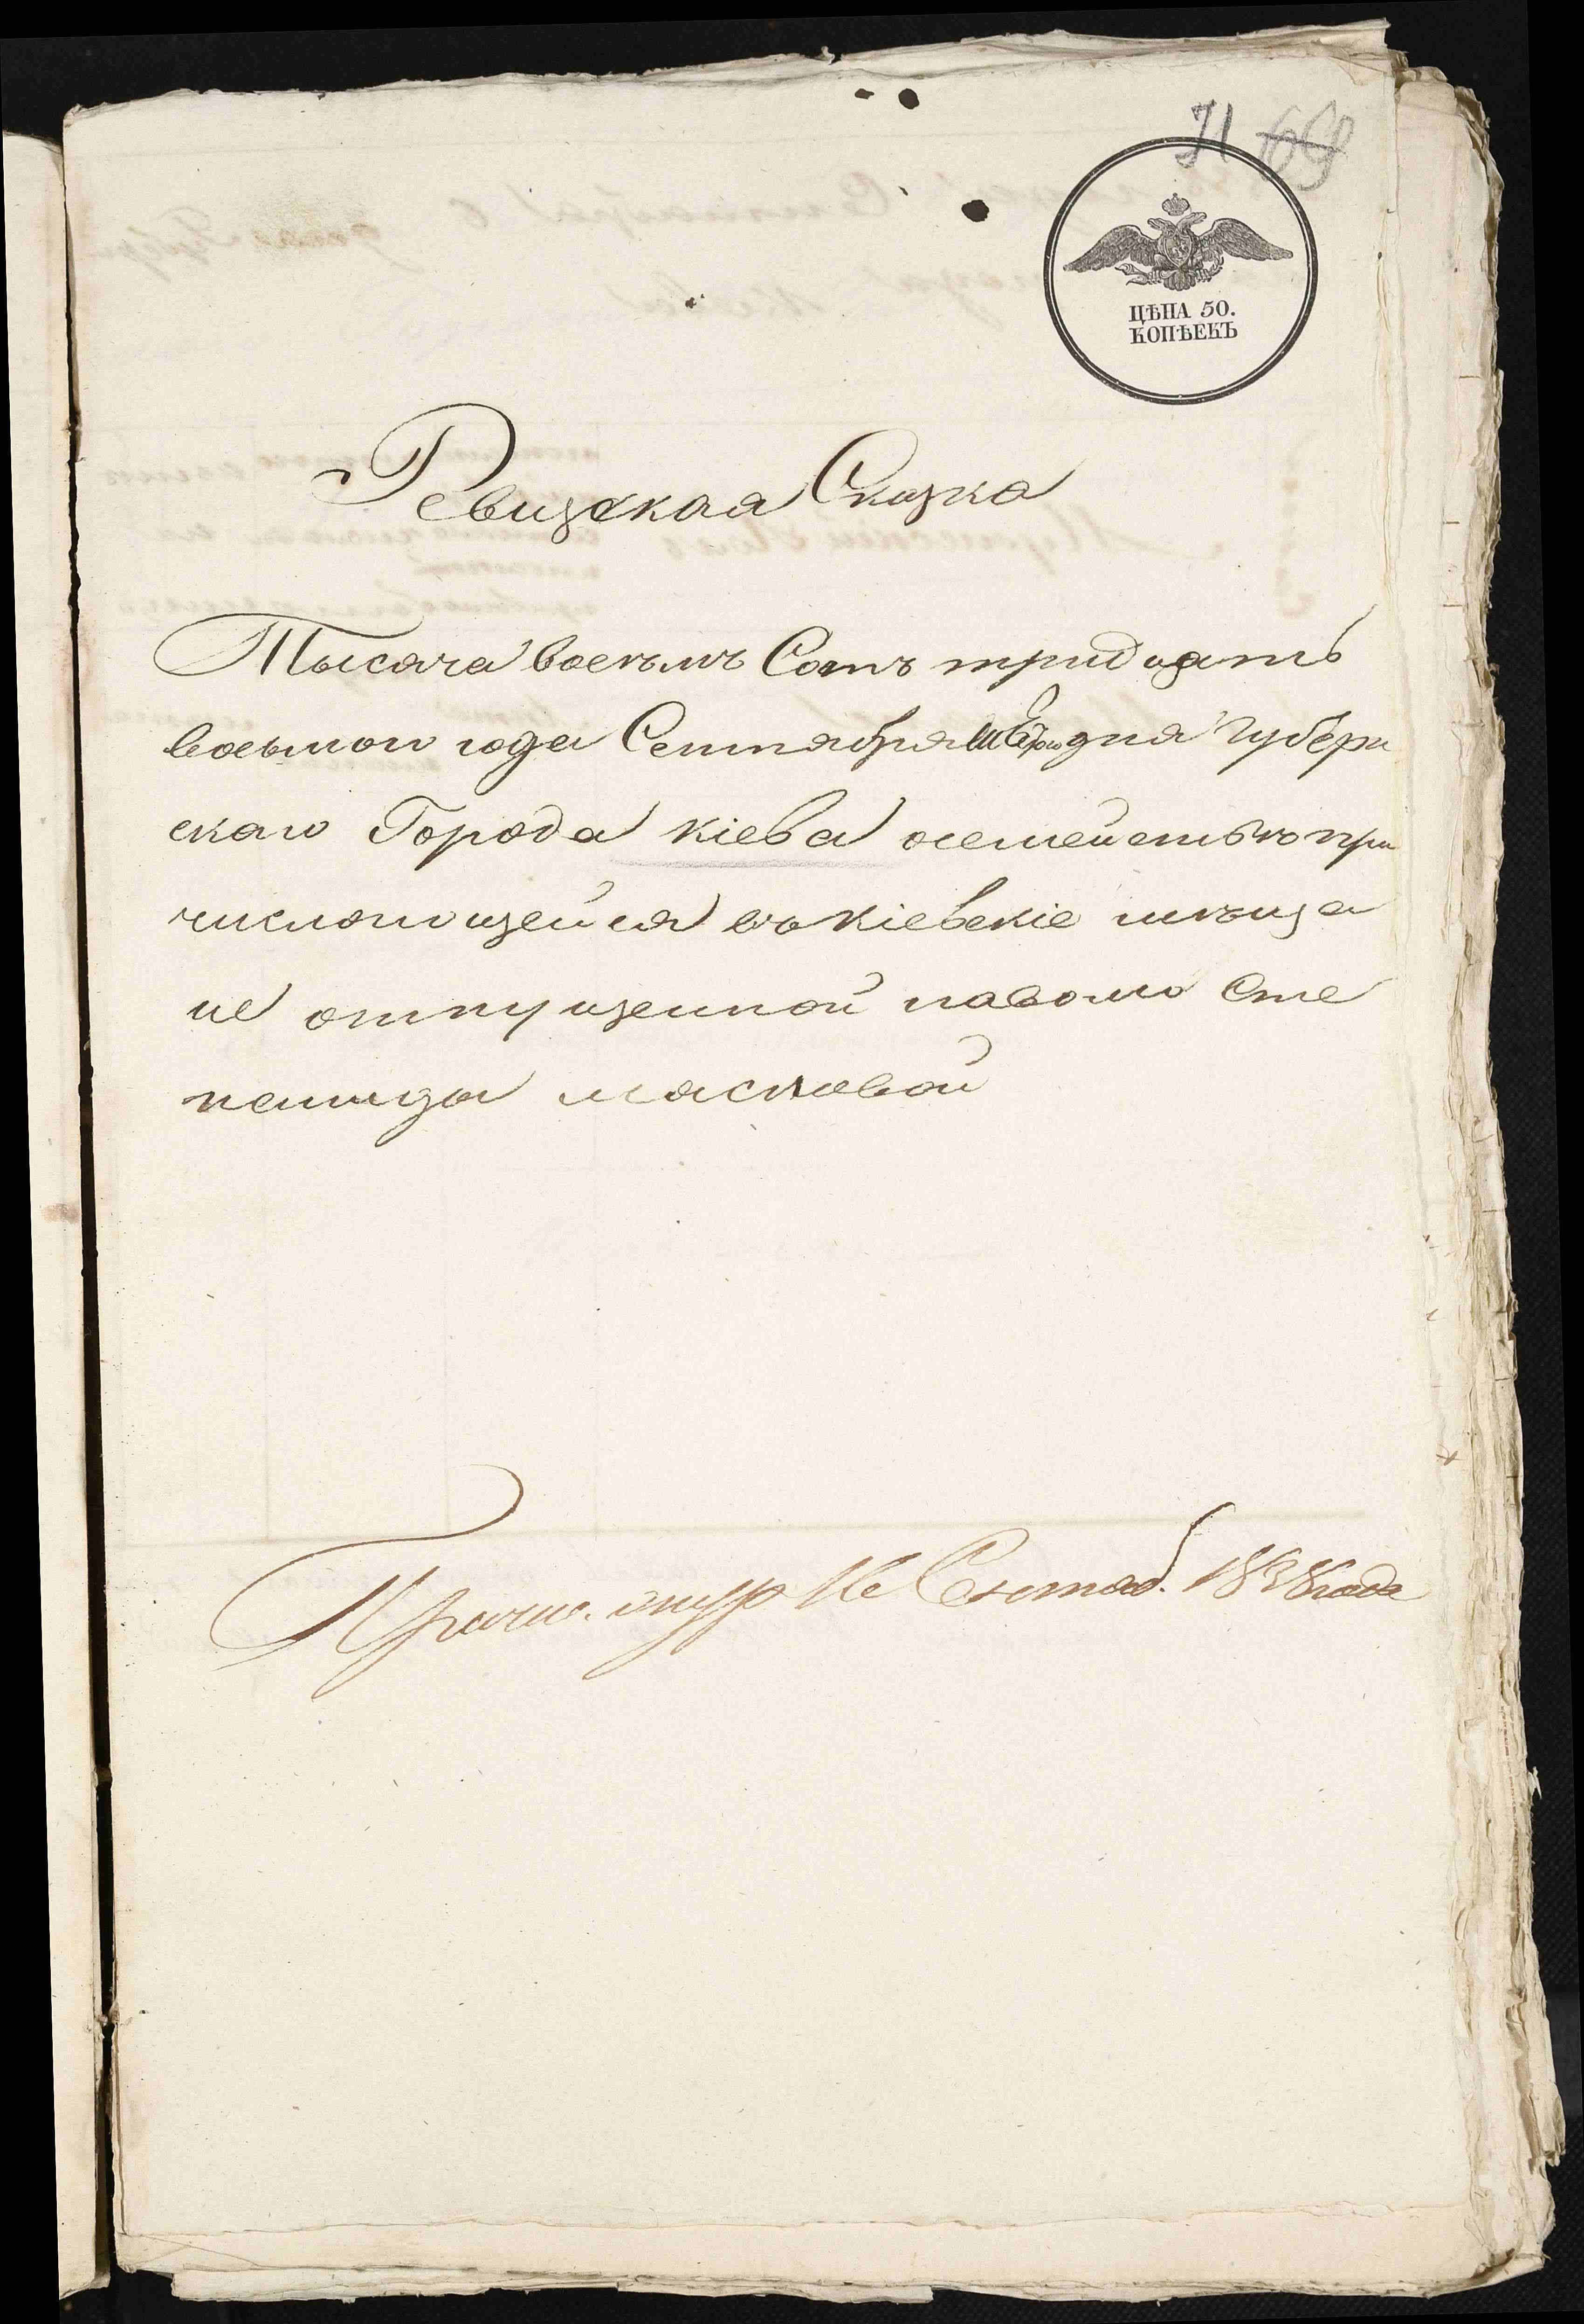 71 69
ЦѢНА 50.
КОПѢЕКЪ
Ревизская Сказка
Тысяча восемъ Сотъ тридцать
восьмого года Сентября дня Губерн
скаго Города Кіева осемействѣ при
числяющейся въ Кіевскіе мѣща
не отпущенной навомо Сте
паниды Масловой
16 Сентяб. 1838 года